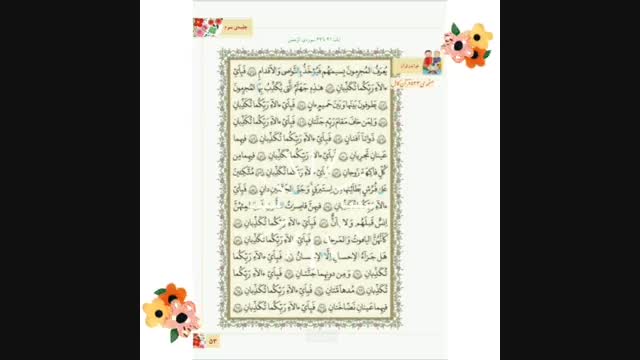 جلسه‌ی سوم
خواندن قرآن
صفحه‌ی ۵۳۳ قرآن کامل
يُعرَفُ المُجرِمونَ بِسيمٰهُم فَيُؤخَذُ بِالنَّواصي وَالأَقدامِ ﴿٤١﴾ فَبِأَيِّ
ءالآءِ رَبِّكُما تُكَذِّبانِ ﴿٤٢﴾ هٰذِهِ جَهَنَّمُ الَّتي يُكَذِّبُ بِهَا المُجرِمونَ
﴿٤٣﴾ يَطوفونَ بَينَها وَبَينَ حَميمٍ ءانٍ ﴿٤٤﴾ فَبِأَيِّ ءالآءِ رَبِّكُما تُكَذِّبانِ
﴿٤٥﴾ وَلِمَن خافَ مَقامَ رَبِّهِ جَنَّتانِ ﴿٤٦﴾ فَبِأَيِّ ءالآءِ رَبِّكُما تُكَذِّبانِ
﴿٤٧﴾ ذَواتآ أَفنانٍ ﴿٤٨﴾ فَبِأَيِّ ءالآءِ رَبِّكُما تُكَذِّبانِ ﴿٤٩﴾ فيهِما
عَينانِ تَجرِيانِ ﴿٥٠﴾ رَبِّكُما تُكَذِّبانِ ﴿٥١﴾ فيهِما مِن
كُلِّ فاكِهَةٍ زَوجانِ ﴿٥٢﴾ تُكَذِّبانِ ﴿٥٣﴾ مُتَّكِئينَ
عَلىٰ فُرُشٍ بَطآئِنُها مِن إِستَبرَقٍ وَجَنَى دانٍ ﴿٥٤﴾ فَبِأَيِّ
ءالآءِ رَبِّكُما تُكَذِّبانِ ﴿٥٥﴾ فيهِنَّ قاصِراتُ
إِنسٌ قَبلَهُم وَلا ﴿٥٦﴾ فَبِأَيِّ ءالآءِ رَبِّكُما تُكَذِّبانِ ﴿٥٧﴾
كَأَنَّهُنَّ الياقوتُ وَالمَرجانُ ﴿٥٨﴾ فَبِأَيِّ ءالآءِ رَبِّكُما تُكَذِّبانِ ﴿٥٩﴾
هَل جَزآءُ الإِحسانِ إِلَّا ﴿٦٠﴾ فَبِأَيِّ ءالآءِ رَبِّكُما
تُكَذِّبانِ ﴿٦١﴾ وَمِن دونِهِما جَنَّتانِ ﴿٦٢﴾ فَبِأَيِّ ءالآءِ رَبِّكُما
تُكَذِّبانِ ﴿٦٣﴾ مُدهآمَّتانِ ﴿٦٤﴾ فَبِأَيِّ ءالآءِ رَبِّكُما تُكَذِّبانِ ﴿٦٥﴾
فيهِما عَينانِ نَضّاخَتانِ ﴿٦٦﴾ فَبِأَيِّ ءالآءِ رَبِّكُما تُكَذِّبانِ ﴿٦٧﴾
۵۳